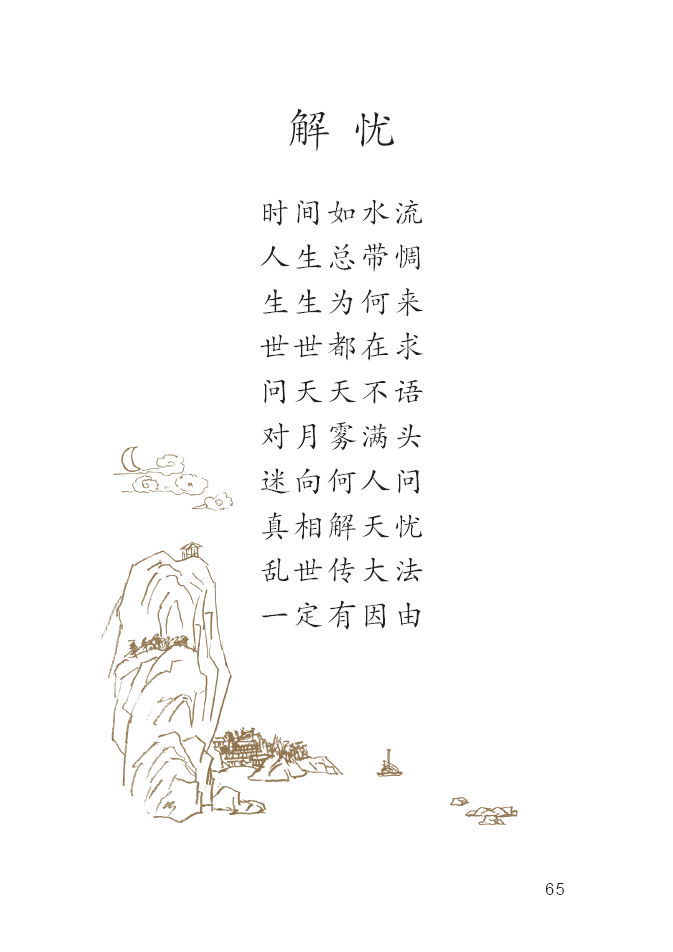 解忧
时间如水流
人生总带惆
生生为何来
世世都在求
问天天不语
对月雾满头
迷向何人问
真相解天忧
乱世传大法
一定有因由
65